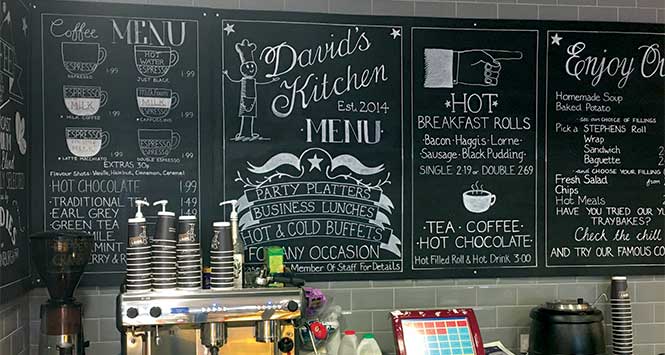 Coffee MENU
ESPRESSO
ESPRESSO
1.99
HOT WATER
ESPRESSO
JUST BLACK
1.99
ESPRESSO
MILK
MILK COFFEE
1.99
MILK
ESPRESSO
CAPPUCCINO
1.99
ESPRESSO
MILK
LATTE MACCHIATO
1.99
ESPRESSO
DOUBLE ESPRESSO
1.99
EXTRAS 30p
Flavour Shots: Vanilla, Hazelnut, Cinnamon, Caramel
HOT CHOCOLATE 1.99
TRADITIONAL TEA
EARL GREY
GREEN TEA
David's
Kitchen
Est. 2014
MENU
PARTY PLATTERS
BUSINESS LUNCHES
HOT & COLD BUFFETS
FOR ANY OCCASION
Member Of Staff For Details
HOT
BREAKFAST ROLLS
Bacon · Haggis · Lorne ·
Sausage · Black Pudding
SINGLE 2.19 DOUBLE 2.69
TEA - COFFEE
HOT CHOCOLATE
Hot Filled Roll & Hot Drink 3.00
Enjoy Ou
Homemade Soup
Baked Potato
- SEE OUR CHOICE OF FILLINGS
Pick a STEPHENS Roll
Wrap
Sandwich
Baguette
- AND CHOOSE YOUR FILLING
Fresh Salad from
Chips
Hot Meals
HAVE YOU TRIED OUR
TRAYBAKES?
Check the chill
AND TRY OUR FAMOUS CO